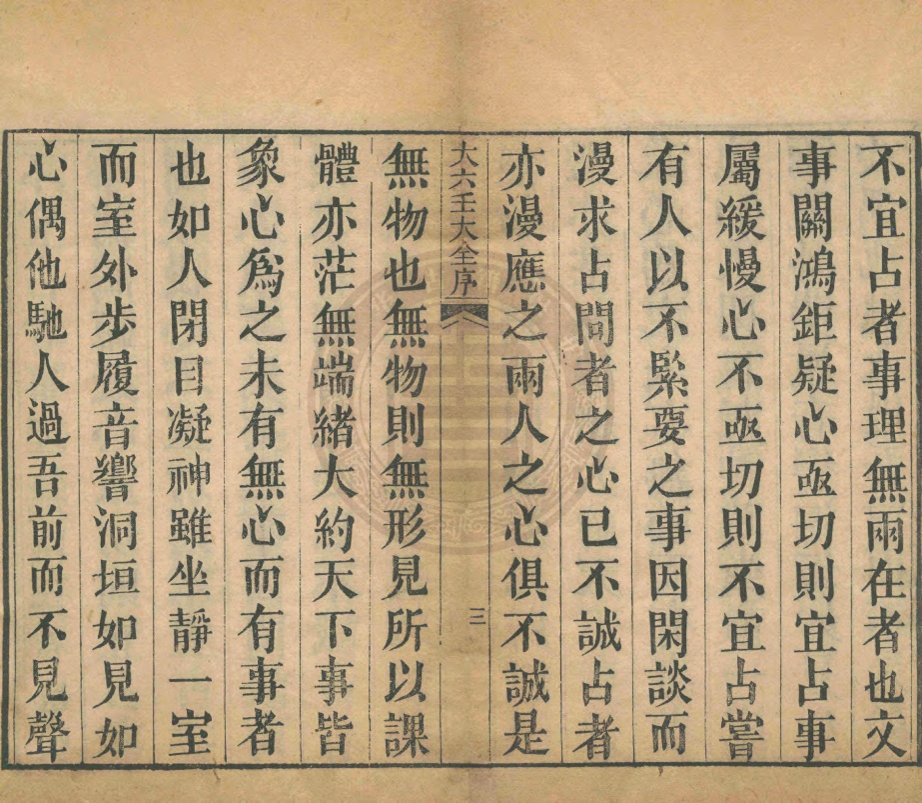 不宜占者事理無兩在者也文
事關鴻鉅疑心亟切則宜占事
屬緩慢心不亟切則不宜占嘗
有人以不緊要之事因閑談而
漫求占問者之心已不誠占者
亦漫應之兩人之心俱不誠是
大六壬大全序
三
無物也無物則無形見所以課
體亦茫無端緒大約天下事皆
象心爲之未有無心而有事者
也如人閉目凝神雖坐靜一室
而室外步履音響洞垣如見如
心偶他馳人過吾前而不見聲